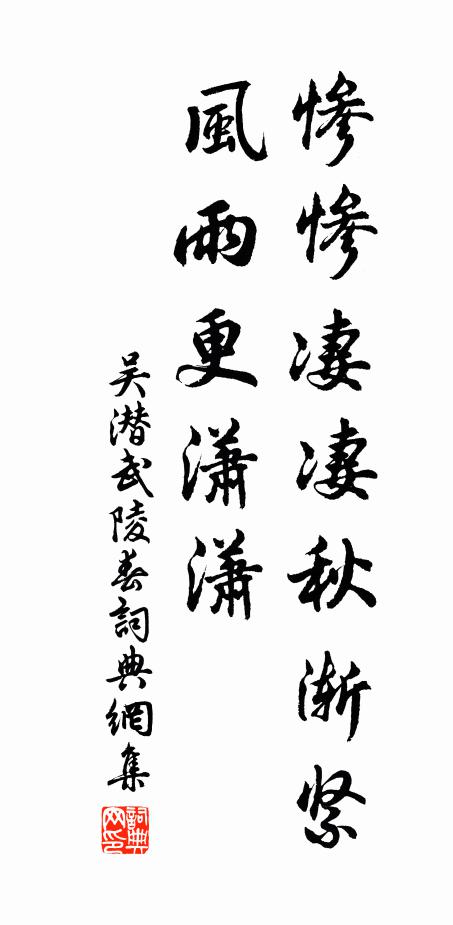 惨惨凄凄秋渐紧
風雨更瀟瀟
吴潜武陵春詞典網集
詞典网印